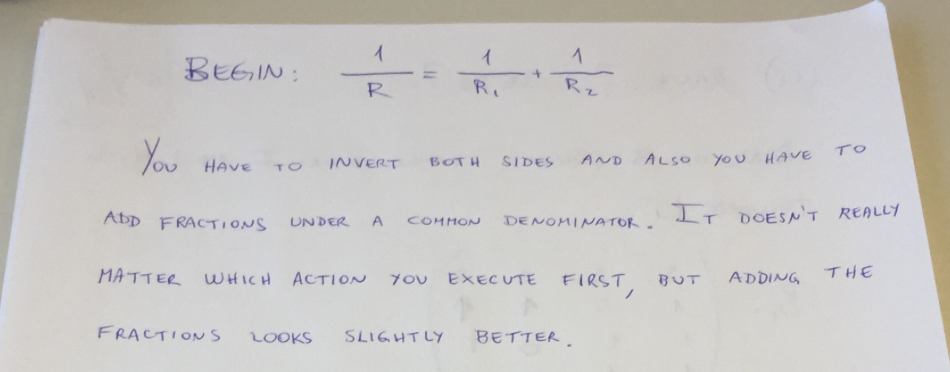 BEGIN: 1/R = 1/R₁ + 1/R₂
YOU HAVE TO INVERT BOTH SIDES AND ALSO YOU HAVE TO
ADD FRACTIONS UNDER A COMMON DENOMINATOR. IT DOESN'T REALLY
MATTER WHICH ACTION YOU EXECUTE FIRST, BUT ADDING THE
FRACTIONS LOOKS SLIGHTLY BETTER.